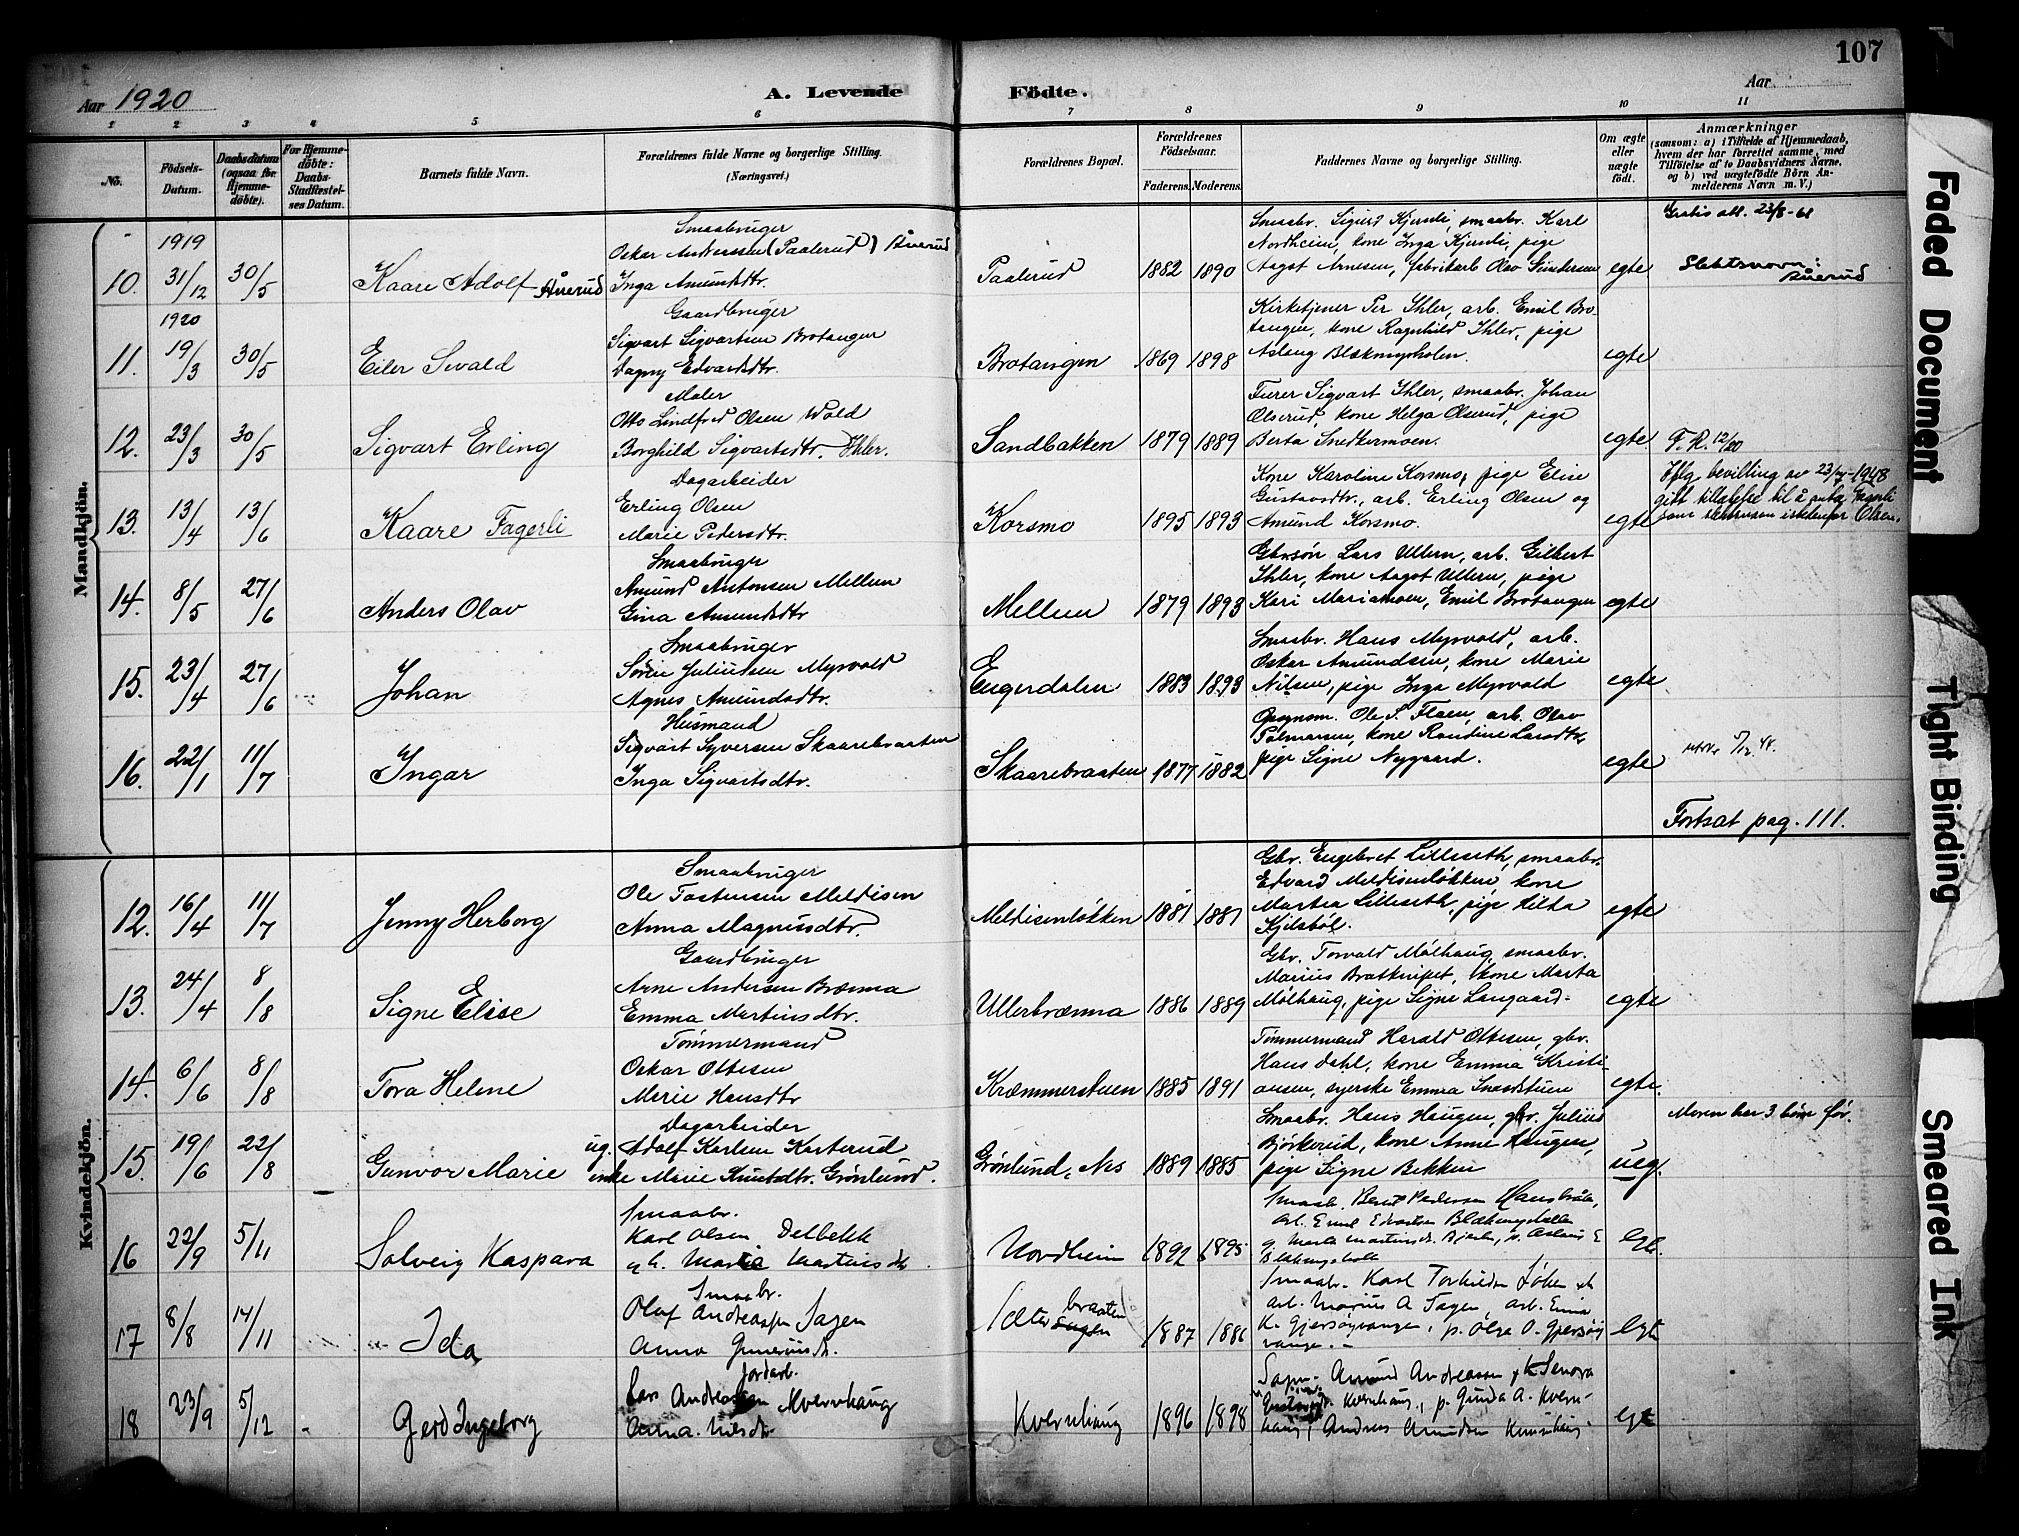 107
Aar 1920
A. Levende
Födte.
Aar
1 2 3 4 5 6 7 8 9 10 11
No.
Födsels-Datum.
Daabsdatum (ogsaa for Hjemmedöbte).
For Hjemmedöbte: Daabs-Stadfæstelses Datum.
Barnets fulde Navn.
Forældrenes fulde Navne og borgerlige Stilling. (Næringsvei.)
Forældrenes Bopæl.
Forældrenes Födselsaar.
Faderens. Moderens.
Faddernes Navne og borgerlige Stilling.
Om ægte eller uægte födt.
Anmærkninger
(saasom: a) i Tilfælde af Hjemmedaab, hvem der har forrettet samme, med Tilföielse af to Daabsvidners Navne, og b) ved uægtefödte Börn Anmelderens Navn m. V.)
Mandkjön.
1919
10. 31/12 30/5 Kaare Adolf Åuerud
Smaabruger
Oskar Anderssen (Paalerud) Åuerud
Inga Amundsdtr.
Paalerud 1882 1890
Smaabr. Sigurd Kjernli, smaabr. Karl
Nordheim, kone Inga Kjernli, pige
Aagot Arnesen, fabrikarb. Olav Gundersen
egte
Gratis att. 23/8-61
Slektsnavn:
Åuerud
1920
11. 19/3 30/5 Eiler Sivald
Gaardbruger
Sigvart Sigvartsen Brotangen
Dagny Edvardsdtr.
Brotangen 1869 1898
Kirketjener Per Ihler, arb. Emil Bro-
tangen, kone Ragnhild Ihler, pige
Aslaug Blækmyrholen.
egte
12. 23/3 30/5 Sigvart Erling
Maler
Otto Lindfred Olsen Wold
Borghild Sigvartsdtr. Ihler.
Sandbakken 1879 1889
Furer Sigvart Ihler, smaabr. Johan
Olserud, kone Helga Olserud, pige
Berta Snekkermoen.
egte.
F. R. 12/20
13. 13/4 13/6 Kaare Fagerli
Dagarbeider
Erling Olsen
Marie Pedersdtr.
Korsmo 1895 1893
Kone Karoline Korsmo, pige Elise
Gustavsdtr., arb. Erling Olsen og
Amund Korsmo.
egte
Iflg bevilling av 23/4-1948
gitt tillatelse til å anta Fagerli
som slektsnavn istedenfor Olsen.
14. 8/5 27/6 Anders Olav
Smaabruger
Amund Antonsen Mellem
Gina Amundsdtr
Mellem 1879 1893
Gbr.søn Lars Ullern, arb. Gilbert
Ihler, kone Aagot Ullern, pige
Kari Mariamoen, Emil Brotangen
egte
15. 23/4 27/6 Johan
Smaabruger
Søren Juliussen Myrvold
Agnes Amundsdtr.
Engerdalen 1883 1893
Smaabr. Hans Myrvold, arb.
Oskar Amundsen, kone Marie
Nilsen, pige Inga Myrvold
egte
16. 22/1 11/7 Ingar
Husmand
Sigvart Syversen Skaarebraaten
Inga Sigvartsdtr.
Skaarebraaten 1877 1882
Opsynsm. Ole S. Floen, arb. Olav
Palmarsen, kone Randine Larsdtr,
pige Signe Nygaard.
egte
Fortsat pag. 111.
Kvindekjön.
12. 16/4 11/7 Jenny Herborg
Smaabruger
Ole Tostensen Meldisen
Anna Magnusdtr.
Meldisenløkken 1881 1881
Gbr. Engebret Lilleseth, smaabr.
Edvard Meldisenløkken, kone
Martea Lilleseth, pige Hilda
Kjilsbøl.
egte
13. 24/4 8/8 Signe Elise
Gaardbruger
Arne Andersen Brænna
Emma Martinsdtr.
Ullerbrænna 1886 1889
Gbr. Torvald Mølhaug, smaabr.
Marius Bratknipet, kone Marta
Mølhaug, pige Signe Langaard.
egte
14. 6/6 8/8 Tora Helene
Tømmermand
Oskar Ottesen
Marie Hansdtr
Kræmmerstuen 1885 1891
Tømmermand Harald Ottesen, gbr.
Hans Dahl, kone Emma Kristi-
ansen, syerske Emma Snedstuen
egte.
15. 19/6 22/8 Gunvor Marie
Dagarbeider
ug. Adolf Karlsen Kasterud
enke Marie Knutsdtr. Grønlund.
Grønlund, Nes 1889 1885
Smaabr. Hans Haugen, gbr. Julius
Bjørkerud, kone Anne Haugen,
pige Signe Bekken
ueg.
Moren har 3 børn før.
16 22/9 5/11 Solveig Kaspara
Smaabr.
Karl Olsen Delbekk
g. h. Maria Martinsdtr.
Nordheim 1892 1895
Smaab. Bernt Pedersen
Arb. Emil Edvartsen
g. Marta Martinsd.
egte.
17 8/8 14/11 Ida
Smaabr.
Olaf Andreassen Sagen
Anna Gunerius d.
braaten
1887 1886
Smaabr. Karl Torkildsen
Arb. Marius A Sagen, arb. Einar
K. Gjersøyvangen, p. Olga O. Gjersøy
vangen.
egte
18 23/9 5/12 Gerd Ingeborg
Jordarb.
Lars Andreassen Kvernhaug
Anna Nilsdtr.
Kvernhaug 1896 1898
Amund Andreassen
Kvernhaug, p. Gunda A. Kvern-
haug, Andreas Amundsen Kvernhaug
egte
Faded Document
Tight Binding
Smeared Ink